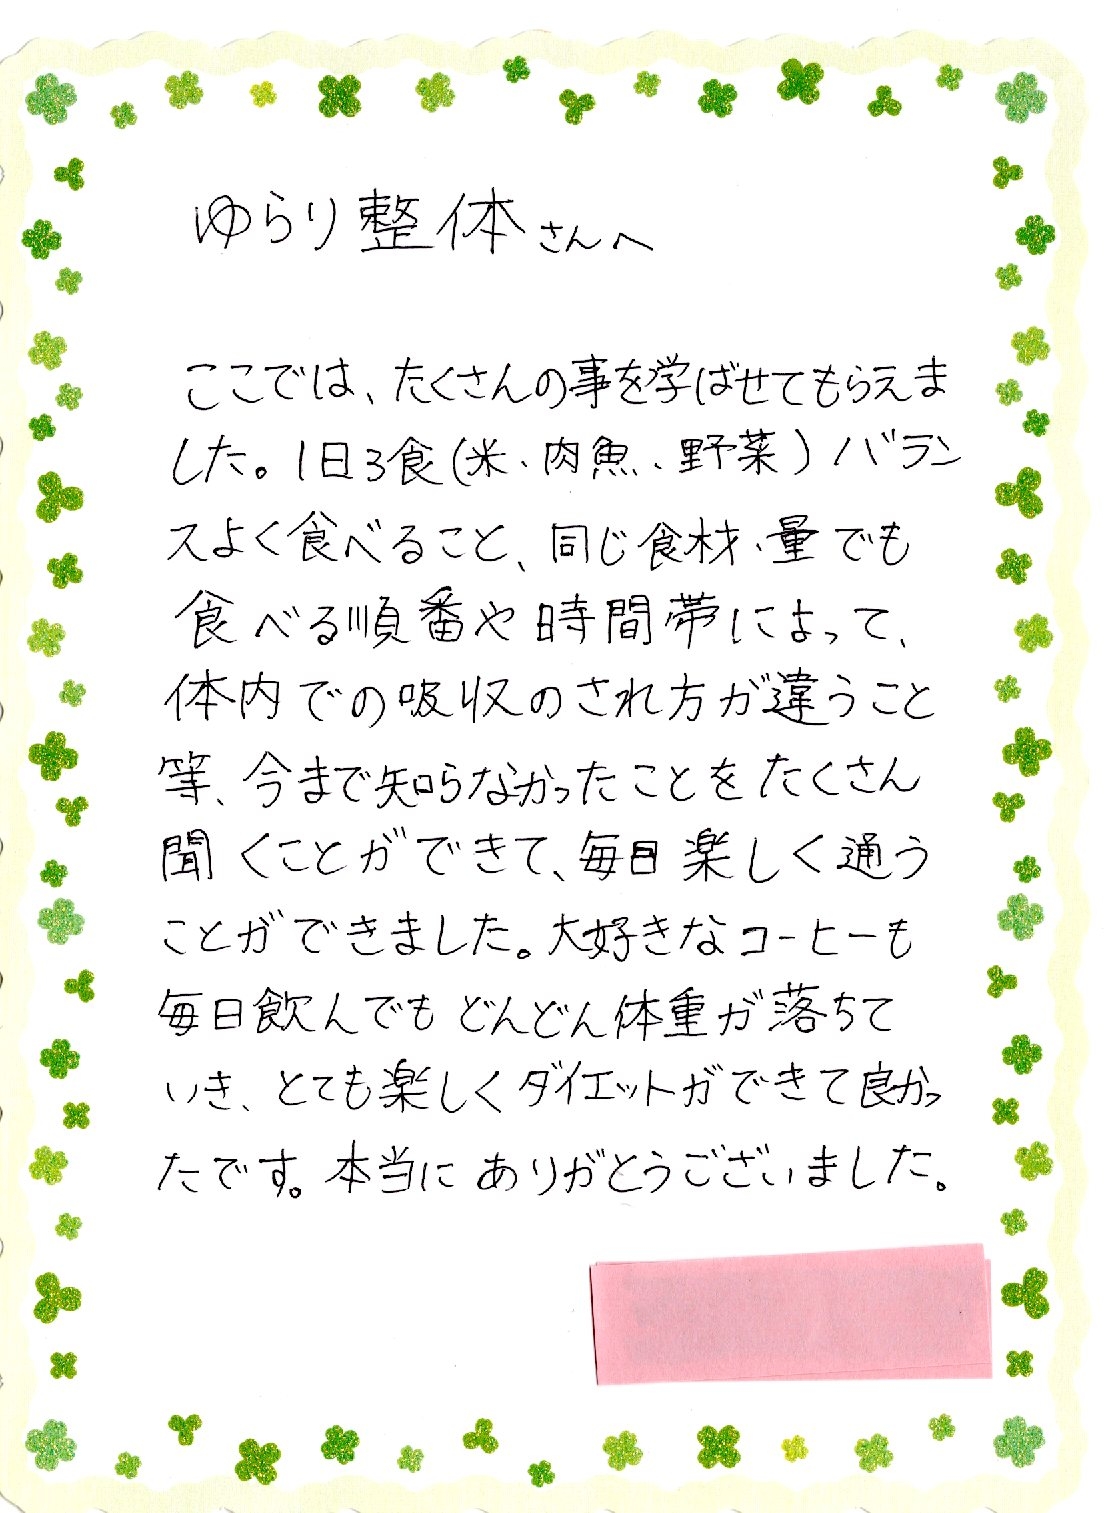 ゆらり整体さんへ
ここでは、たくさんの事を学ばせてもらえま
した。1日3食(米、肉魚、野菜)バラン
スよく食べること、同じ食材、量でも
食べる順番や時間帯によって、
体内での吸収のされ方が違うこと
等、今まで知らなかったことをたくさん
聞くことができて、毎日楽しく通う
ことができました。大好きなコーヒーも
毎日飲んでもどんどん体重が落ちて
いき、とても楽しくダイエットができて良かっ
たです。本当にありがとうございました。